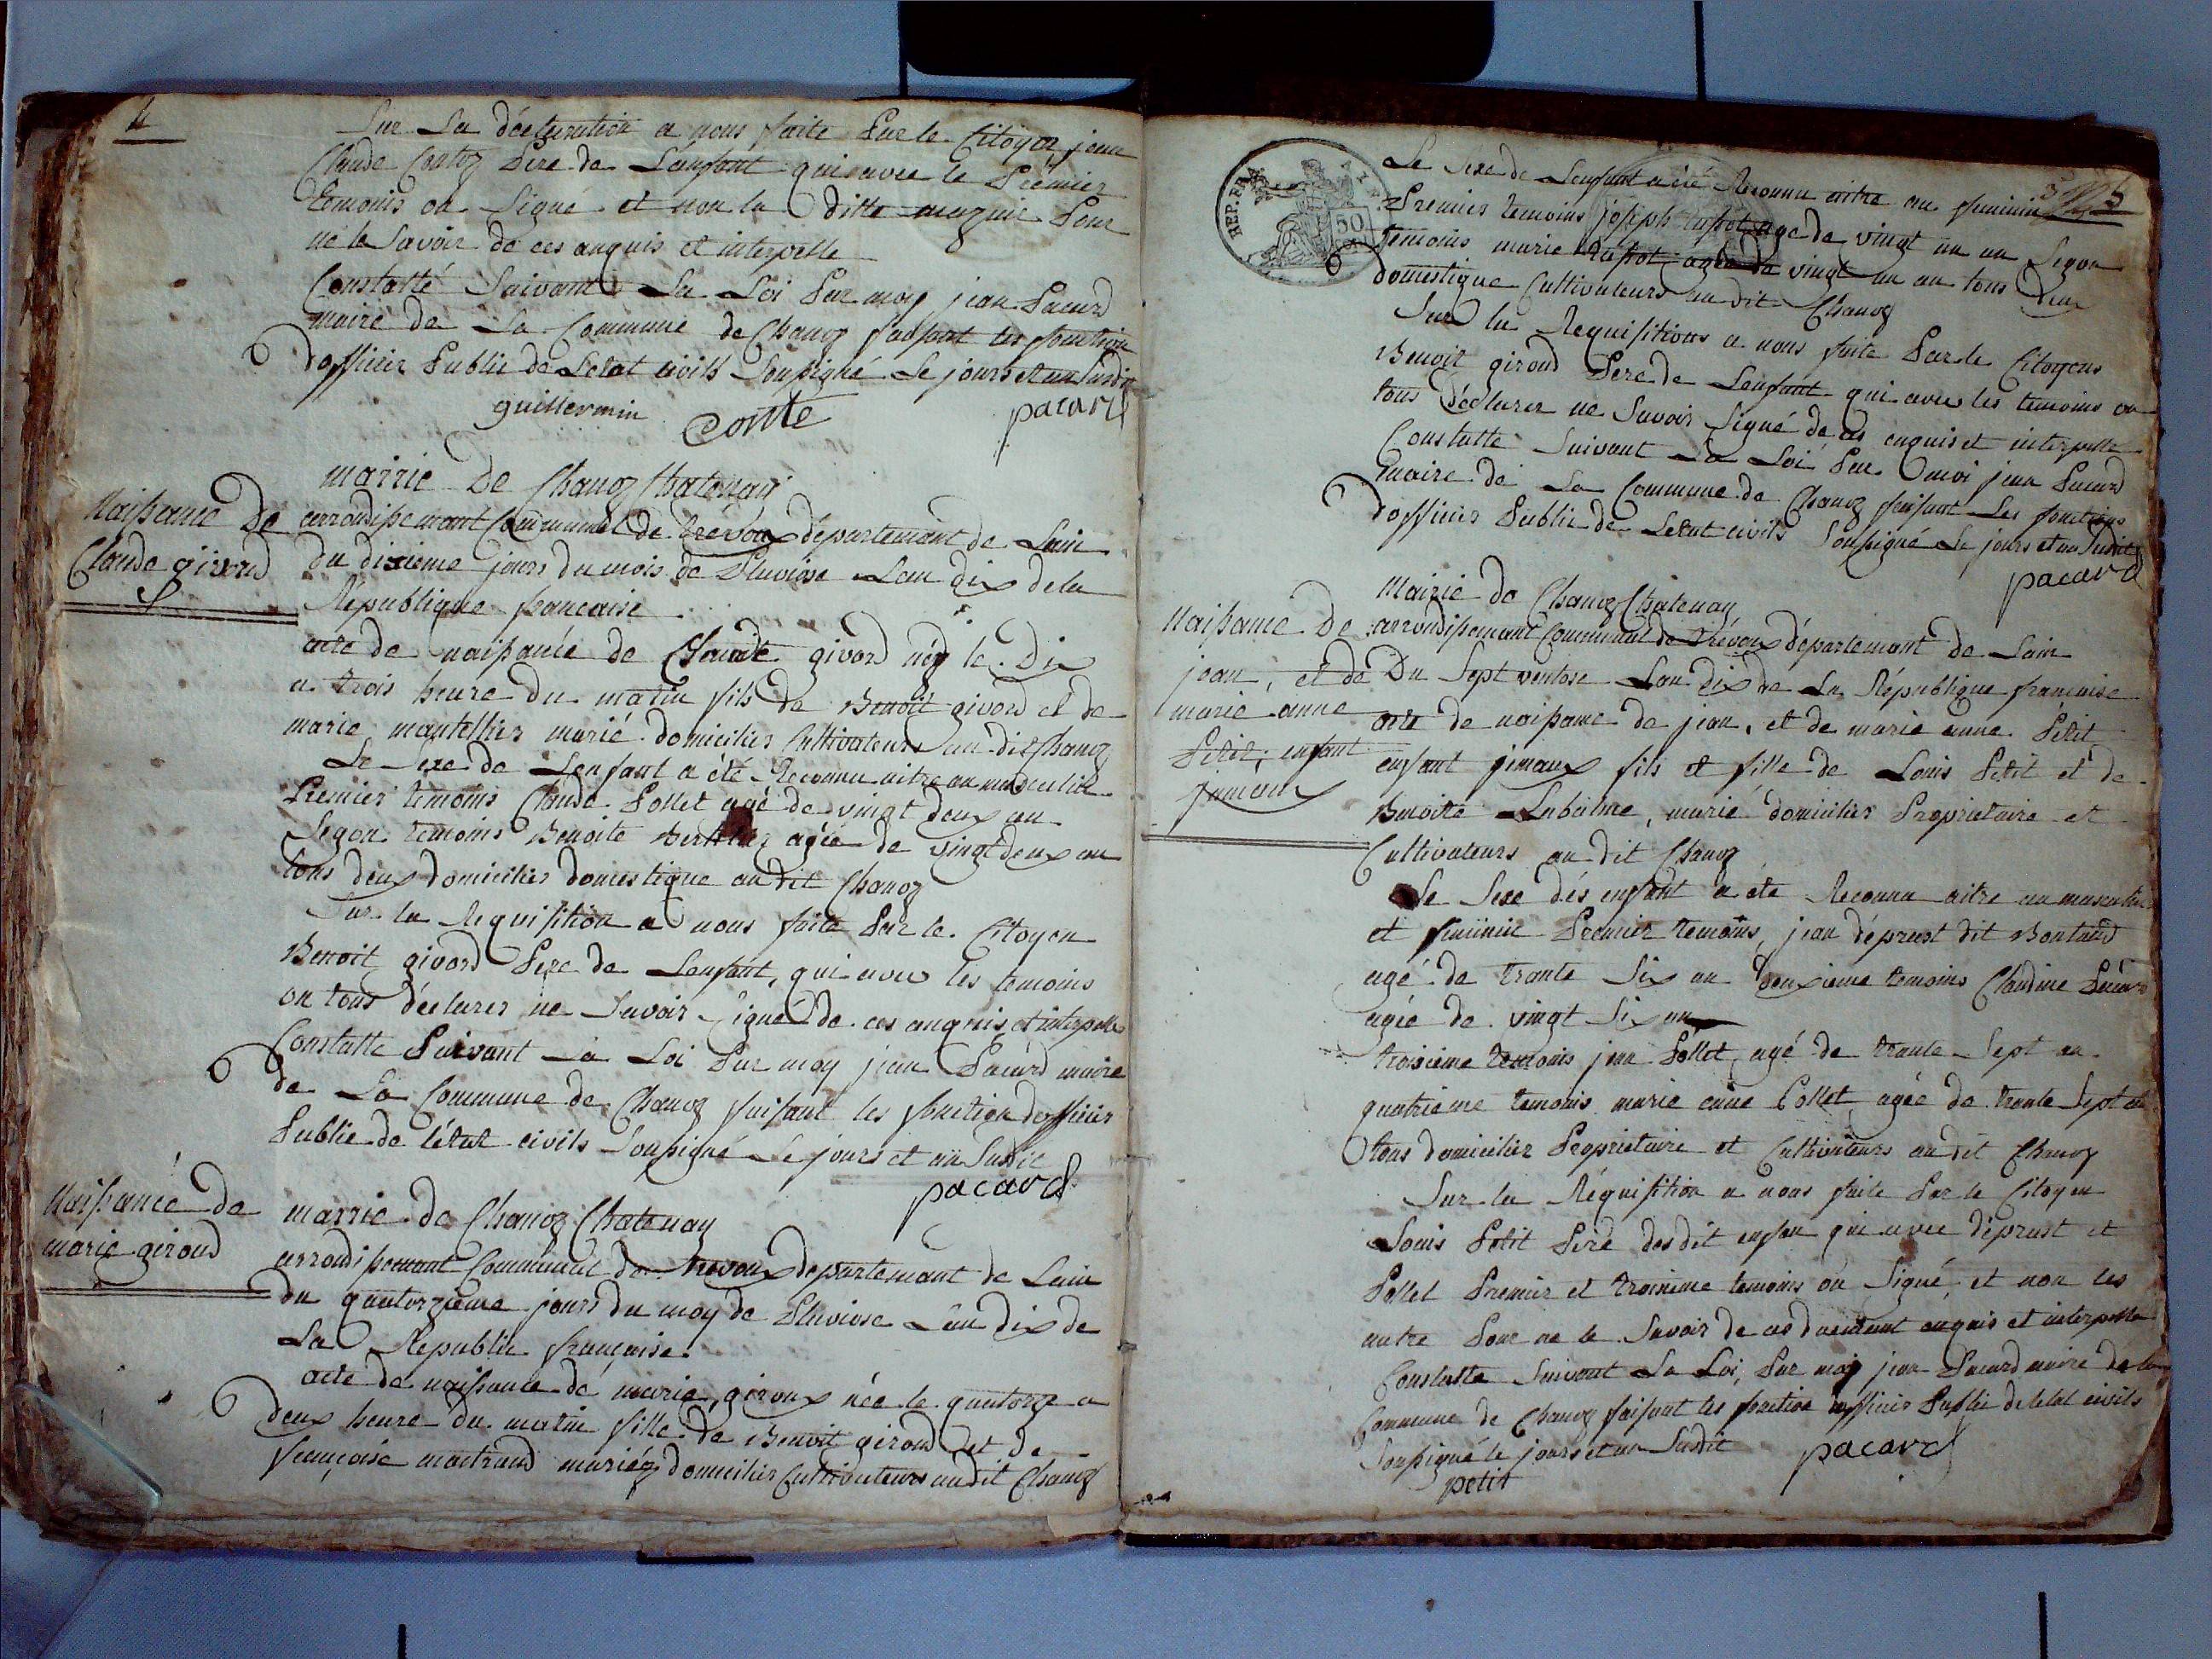 4
Sur La déclaration a nous faite Par le Citoÿen jean
Claude Contoz Pere de Lenfant qui avec le Premier
temoins on Signé et non la ditte Pour
ne le Savoir de ces anquis et interpelle
Constatté Suivant La Loi Par moy jean Pacard
maire de La Commune de Chanoz faisant les fonction
dofficier Public de Letat civils Soussigné Le jours et an Susdit
guillermin Contte pacard
mairie De Chanoz Chatenay
Naissance De
Claude givord
arrondissemant Communal de trevoux département de Lain
du dixieme jours du mois de Pluviose Lan dix de la
Republique francaise
acte de naissance de Claude givord néz le Dix
a trois heure du matin fils de Benoit givord et de
marie mantellier marié domicilier Cultivateurs au dit Chanoz
Le Sexe de Lenfant a été Reconnu aitre au masculin
Premier temoins Claude Pollet agé de vingt deux an
Segon temoins Benoite agée de vingt deux an
tous deux domicilier domestique au dit Chanoz
Sur la Requisition a nous faite Par le Citoyen
Benoit givord Pere de Lenfant, qui avec les temoins
on tous déclarer ne Savoir Signé de ces anquis et interpelle
Constatte Suivant La Loi Par moy jean Pacard maire
de La Commune de Chanoz faisant les fonction dofficier
Public de létat civils Soussigné Le jours et an Susdit
pacard
Naissance de
marie giroud
mairie de Chanoz Chatenay
arrondissemant Communal de trevoux departemant de Lain
du quatorzieme jours du moy de Pluviose Lan dix de
La Republic française
acte de naissance de marie giroux née le quatorze a
deux heure du matin fille de Benoit giroud et de
françoise maitraud mariéz domicilier Cultivateurs au dit Chanoz
REP. FRA
50
5
Le Sexe de Lenfant a été Reconnu aitre au feminin
Premier temoins joseph agé de vingt un an Segon
temoins marie agée de vingt un an tous deux
domestique Cultivateurs au dit Chanoz
Sur la Requisitions a nous faite Par le Citoyens
Benoit giroud Pere de Lenfant qui avec les temoins on
tous déclarer ne Savoir Signé de ces enquis et interpelle
Constatte Suivant La Loi Par moi jean Pacard
maire de La Commune de Chanoz faisant Les fonctions
dofficier Public de Letat civils Soussigné Le jours et an Susdit
pacard
Mairie de Chanoz Chatenay
Naissance De
jean, et de
marie anne
Petit, enfant
jumeaux
arrondissemant Communal de trévoux département de Lain
Du Sept ventose Lan Dix de La République francaise
acte de naissance de jean, et de marie anne Petit
enfant jimaux fils et fille de Louis Petit et de
Benoite Labalme, marié domicilier Proprietaire et
Cultivateurs au dit Chanoz
Le Sexe dés enfant a été Reconnu aitre au masculin
et feminin Premier temoins, jean déprust dit Bontand
agé de trante Six an deuxieme temoins Claudine Pacard
agée de vingt Six an
troisieme temoins jean Pollet, agé de trante Sept an
quatrieme temoins marie anne Collet agée de trante Sept an
tous domicilier Proprietaire et Cultivateurs au dit Chanoz
Sur la Réquisition a nous faite Par le Citoyen
Louis Petit Pere desdit enfan qui avec déprust et
Pollet Premier et troisieme temoins on Signé, et non les
autre Pour ne le Savoir de ces duemant enquis et interpelle
Constatte Suivant La Loi, Par moy jean Pacard maire de la
Commune de Chanoz faisant les fonction dofficier Public de létat civils
Soussigné le jours et an Susdit pacard
petit